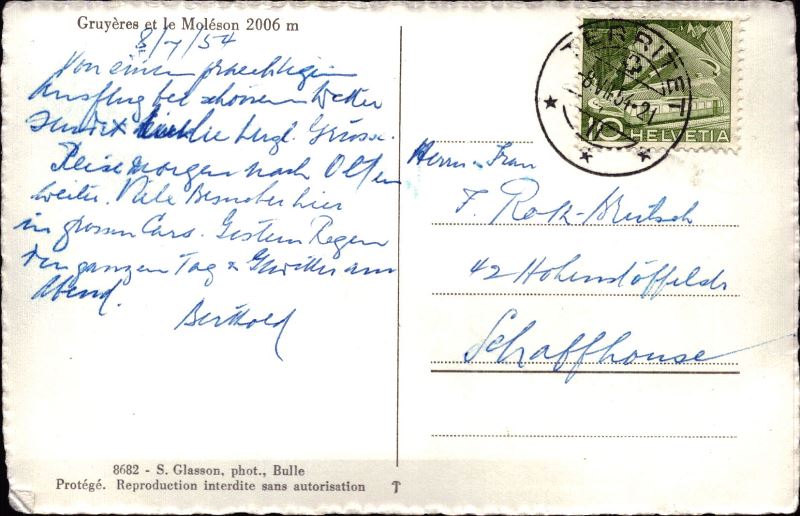 Gruyères et le Moléson 2006 m
8/7/54
Von einem praechtigen
Ausflug bei schönem Wetter
sendet herzl. Grüsse.
Reise morgen nach Olten
weiter. Viele Besucher hier
in grossen Cars. Gestern Regen
den ganzen Tag & Gewitter am
Abend.
Berthold
8682 - S. Glasson, phot., Bulle
Protégé. Reproduction interdite sans autorisation
TERRITET
-8.VII.54-21
10 HELVETIA
Herrn & Frau
F. Rotz-
42 Hohenstoffelstr
Schaffhouse